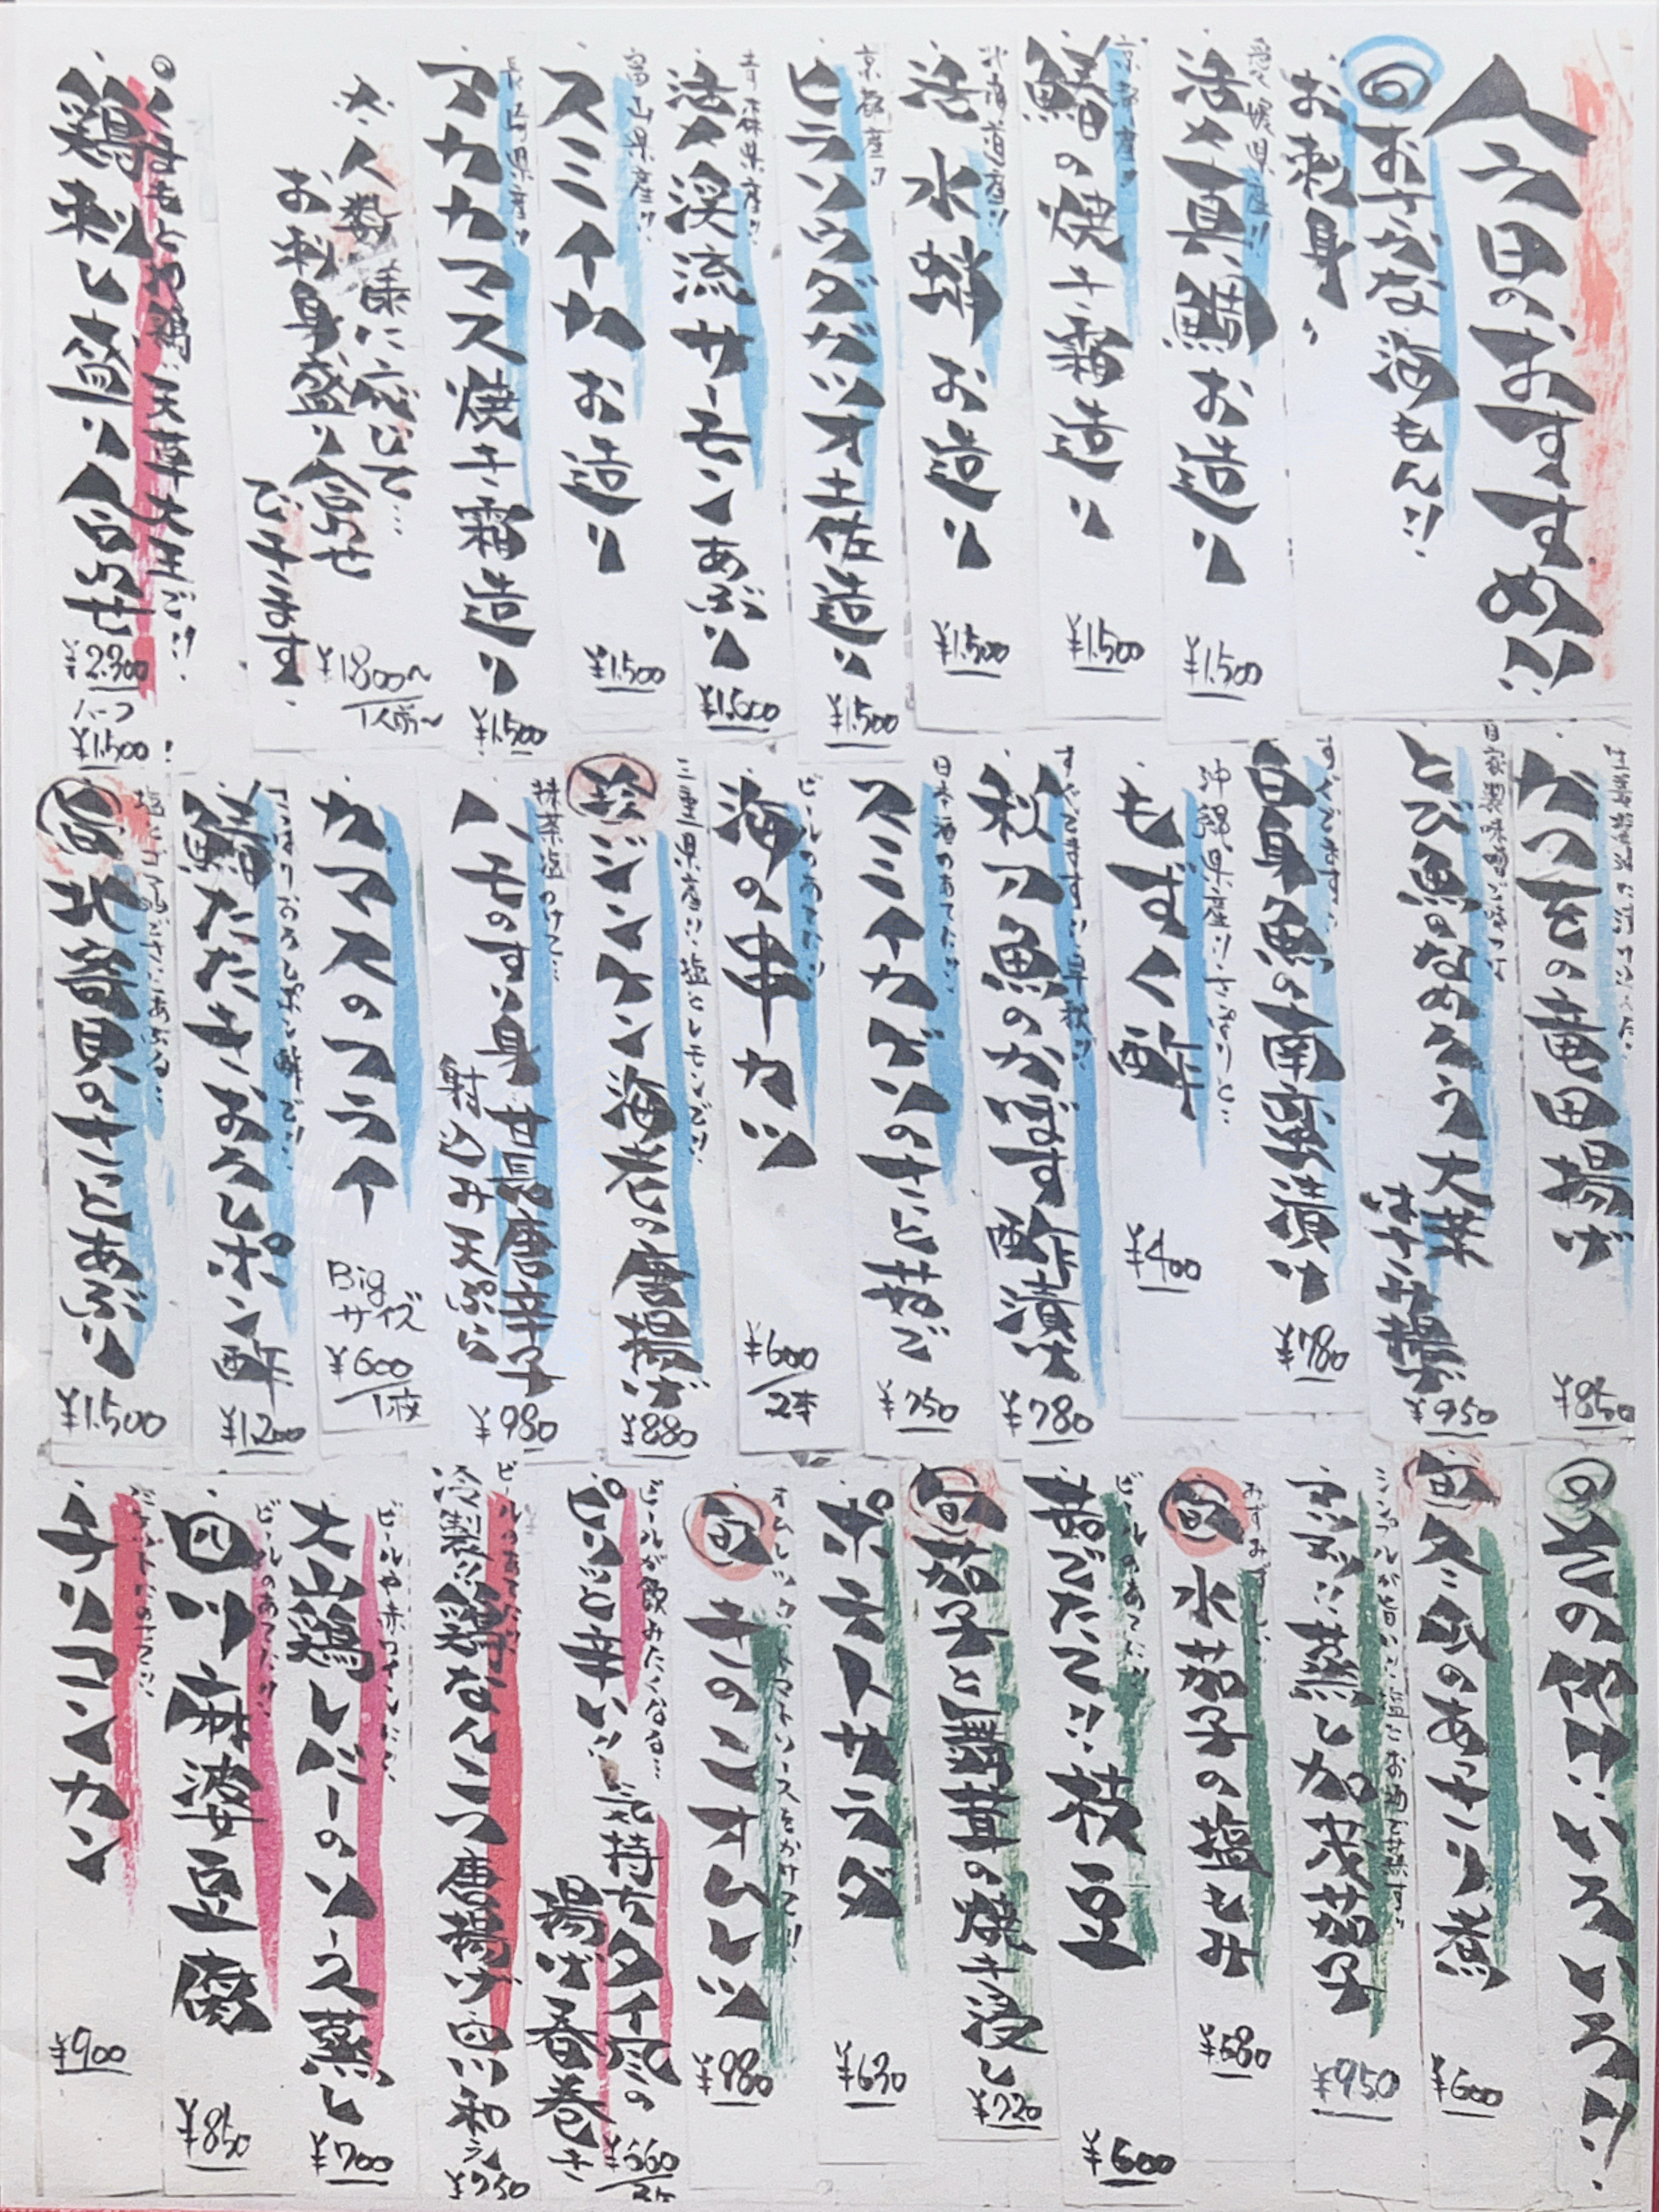 六田のおすすめ!!
旬 お手々な海もん!!
お刺身、
愛媛県産!!
活〆真鯛お造り ¥1,500
京都産!!
鰆の焼き霜造り ¥1,500
北海道産!!
活水蛸お造り ¥1,500
京都産!!
ヒラソウダガツオ土佐造り ¥1,500
青森県産!!
活〆渓流サーモンあぶり ¥1,600
富山県産!!
スミイカお造り ¥1,500
長崎県産!!
アカカマス焼き霜造り ¥1,500
人数様に応じて…
お刺身盛り合わせ
できます。 ¥1,800〜/1人前〜
◎くまもとの鶏!! 天草大王で!!
鶏刺し盛り合わせ ¥2,300
ハーフ ¥1,500
かつをの竜田揚げ ¥850
自家製味噌が味つけ
とび魚のなめろう大葉
はさみ揚げ ¥950
すぐでますす!!
白身魚の南蛮漬け ¥780
沖縄県産!!さっぱりと…
もずく酢 ¥400
すぐでますす!!早秋!!
秋刀魚のかぼす酢漬け ¥780
日本酒のあてに!!
スミイカゲソのさっと茹で ¥750
ビールのあてに!!
海の串カツ ¥600/2本
三重県産!!塩とレモンで!!
珍 ジンケン海老の唐揚げ ¥880
抹茶塩つけて…
ハモのすり身 甘長唐辛子
射込み天ぷら ¥980
カマスのフライ
Bigサイズ ¥600/1枚
鰆たたきおろしポン酢 ¥1,200
旨 北寄貝のさっとあぶり ¥1,500
旬 その他いろいろ!!
旬 冬瓜のあっさり煮 ¥600
シンプルが旨い!!塩とお酒で蒸す!!
まるまる!!蒸し加茂茄子 ¥950
旬 水茄子の塩もみ ¥680
ビールのあてに!!
茹でたて!!枝豆 ¥600
旬 茄子と舞茸の焼き浸し ¥720
ポテトサラダ ¥630
オムレツに トマトソースをかけて!!
旬 きのこオムレツ ¥980
ビールが飲みたくなる…
ピリッと辛い!! 気持ちタイ風の
揚げ春巻き ¥660/2ケ
ビールのあてに!!
冷製!!鶏なんこつ唐揚げ 四川和え ¥750
ビールや赤ワインに!!
大山鶏レバーのソース蒸し ¥700
ビールのあてに!!
四川麻婆豆腐 ¥850
バケットにのせて!!
チリコンカン ¥900